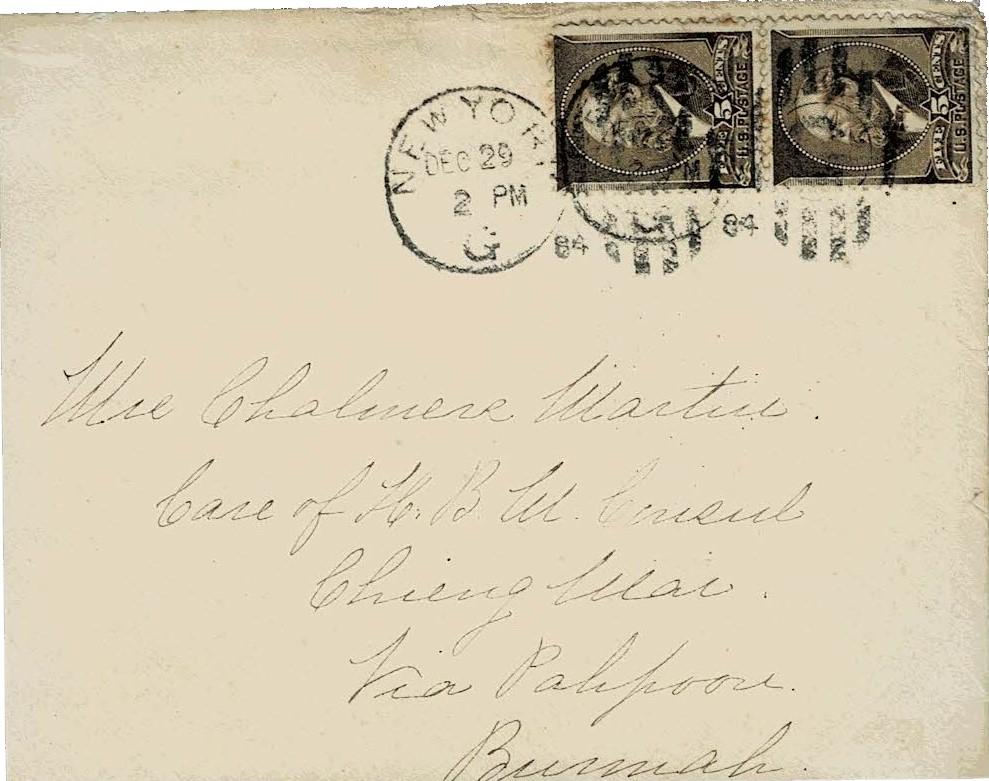 FIVE 5 CENTS
U.S. POSTAGE
FIVE 5 CENTS
U.S. POSTAGE
NEW YORK
DEC 29
2 PM
G
84
84
Mrs Chalmers Martin.
Care of H. B. M. Consul
Chieng Mai.
Via Pahpoon.
Burmah.